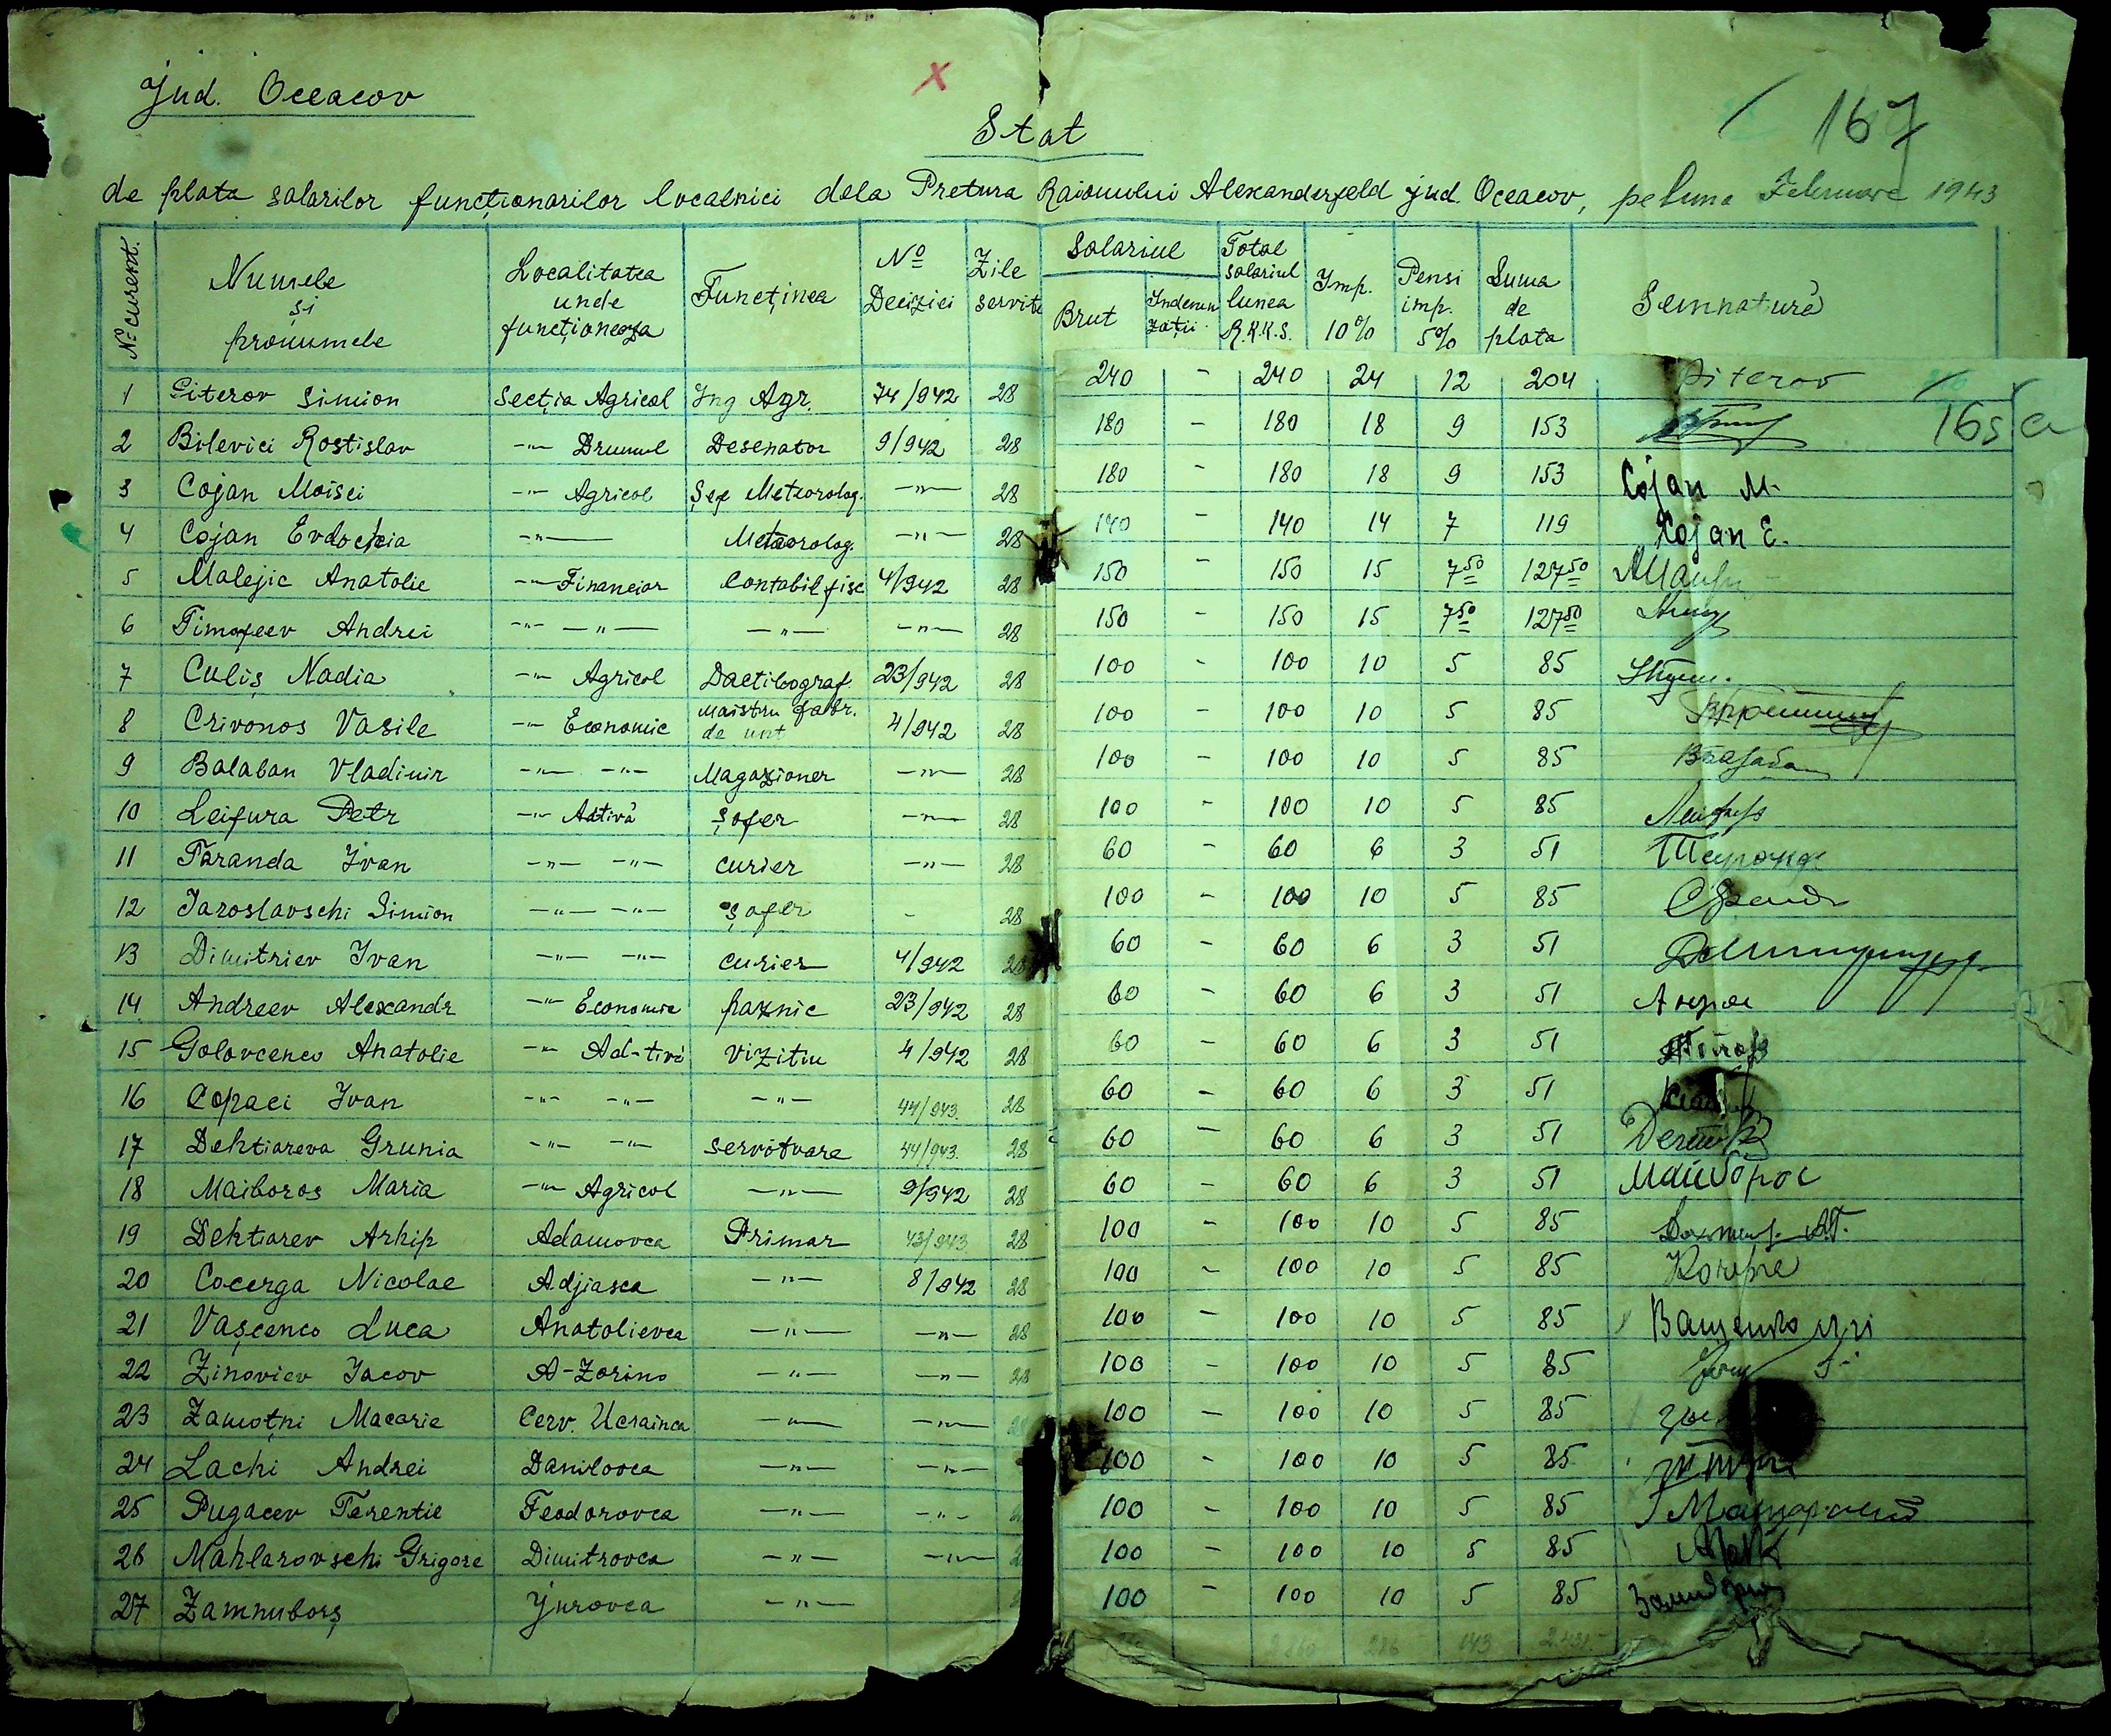 jud. Oceacov
x
167
Stat
de plata salarilor funcționarilor localnici dela Pretura Raionului Alexanderfeld jud. Oceacov, pe luna Februare 1943
No curent. Numele și pronumele Localitatea unde funcționeaza Funcținea No Deciziei Zile servite Salariul Brut Indemnizații Total salariul lunea R.K.K.S. Imp. 10% Pensi imp. 5% Suma de plata Semnatură
165 a
1 Piterov Simion Secția Agricol Ing Agr. 74/942 28 240 - 240 24 12 204 Piterov
2 Bilevici Rostislav -"- Drumul Desenator 9/942 28 180 - 180 18 9 153
3 Cojan Moisei -"- Agricol Șef Meteorolog. -"- 28 180 - 180 18 9 153 Cojan M.
4 Cojan Evdochia -"- Meteorolog. -"- 28 140 - 140 14 7 119 Cojan E.
5 Malejic Anatolie -"- Financiar Contabil fisc 4/942 28 150 - 150 15 7 50 127 50
6 Timofeev Andrei -"- -"- -"- -"- 28 150 - 150 15 7 50 127 50
7 Culiș Nadia -"- Agricol Dactilograf. 23/942 28 100 - 100 10 5 85
8 Crivonos Vasile -"- Economic Maistru fabr. de unt 4/942 28 100 - 100 10 5 85
9 Balaban Vladimir -"- -"- Magazioner -"- 28 100 - 100 10 5 85
10 Leifura Petr -"- Ad-tivă Șofer -"- 28 100 - 100 10 5 85
11 Taranda Ivan -"- -"- curier -"- 28 60 - 60 6 3 51
12 Iaroslavschi Simion -"- -"- Șofer - 28 100 - 100 10 5 85
13 Dimitriev Ivan -"- -"- curier 4/942 28 60 - 60 6 3 51
14 Andreev Alexandr -"- Economic paznic 23/942 28 60 - 60 6 3 51
15 Golovcenco Anatolie -"- Ad-tivă vizitiu 4/942 28 60 - 60 6 3 51
16 Copaci Ivan -"- -"- -"- 44/943. 28 60 - 60 6 3 51
17 Dehtiareva Grunia -"- -"- servitoare 44/943. 28 60 - 60 6 3 51
18 Maiboros Maria -"- Agricol -"- 9/942 28 60 - 60 6 3 51 Майборос
19 Dehtiarev Arhip Adamovca Primar 43/943 28 100 - 100 10 5 85
20 Cocerga Nicolae Adjiasca -"- 8/942 28 100 - 100 10 5 85
21 Vașcenco Luca Anatolievca -"- -"- 28 100 - 100 10 5 85 Ващенко
22 Zinoviev Iacov A-Zorino -"- -"- 28 100 - 100 10 5 85
23 Zamotni Macarie Cerv. Ucrainca -"- -"- 100 - 100 10 5 85
24 Lachi Andrei Danilovca -"- -"- 100 - 100 10 5 85
25 Pugacev Terentie Feodorovca -"- -"- 100 - 100 10 5 85
26 Mahlarovschi Grigore Dimitrovca -"- -"- 100 - 100 10 5 85
27 Zamnuborș Jurovca -"- 100 - 100 10 5 85
286 143 2.431.-